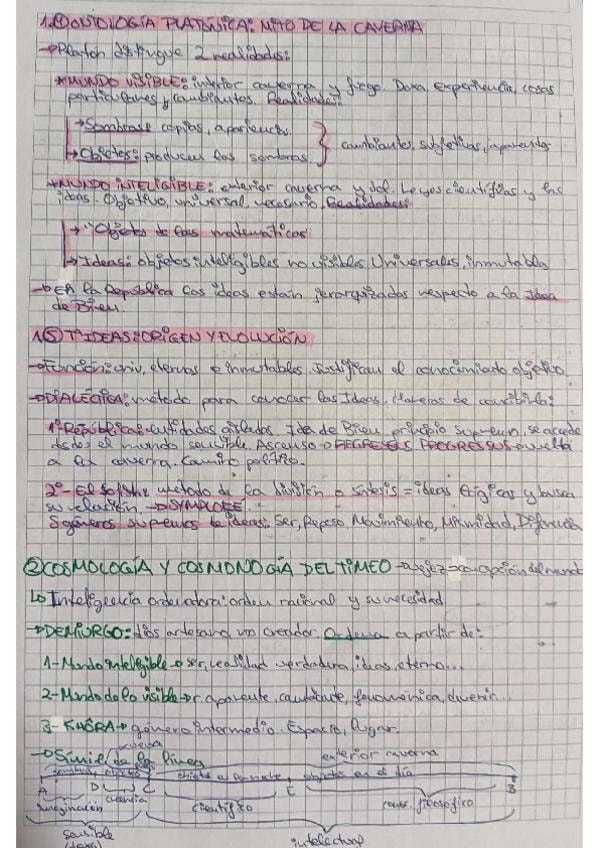 1.④ONTOLOGÍA PLATÓNICA: MITO DE LA CAVERNA
→Platón distingue 2 realidades:
*MUNDO VISIBLE: interior caverna y fuego. Doxa experiencia, cosas
particulares y cambiantes. Realidades:
→Sombras: copias, apariencia.
→Objetos: producen las sombras.
cambiantes, subjetivas, aparentes
*MUNDO INTELIGIBLE: exterior caverna y sol. Leyes científicas y las
ideas. Objetivo, universal, necesario. Realidades:
→"Objetos de las matemáticas"
→Ideas: objetos inteligibles no visibles. Universales, inmutables
→En la República las ideas están jerarquizadas respecto a la Idea
de Bien.
1.⑤ Tª IDEAS: ORIGEN Y EVOLUCIÓN
→Función: univ, eternas e inmutables. Justifican el conocimiento objetivo.
→DIALÉCTICA: método para conocer las Ideas. Maneras de concebirla:
1º-República: entidades aisladas. Idea de Bien principio supremo, se accede
desde el mundo sensible. Ascenso→REGRESSUS. PROGRESSUS→vuelta
a la caverna. Camino político.
2º-El Sofista: método de la división o síntesis = ideas lógicas y busca
su relación. →SYMPLOKÉ
5 géneros supremos de ideas: Ser, Reposo, Movimiento, Mismidad, Diferencia
②COSMOLOGÍA Y COSMONOGÍA DEL TIMEO→vejez→concepción del mundo
↳Inteligencia ordenadora: orden racional y su necesidad
→DEMIURGO: dios artesano, no creador. Ordena a partir de:
1-Mundo inteligible→ser, realidad verdadera, ideas, eterno...
2-Mundo de lo visible→r. aparente, cambiante, fenoménica, devenir...
3-KHÔRA→género intermedio. Espacio, lugar.
→Símil de la línea
cueva
exterior caverna
sombras objetos
objetos de noche, objetos en el día
A D C E B
imaginación creencia científico conoc. filosófico
sensible intelectual
(doxa)